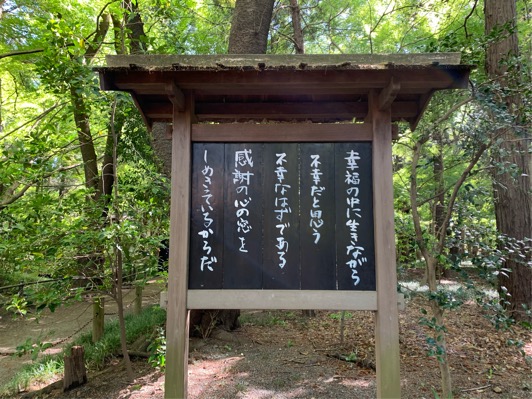 幸福の中に生きながら
不幸だと思う
不幸なはずである
感謝の心の窓を
しめきっているからだ